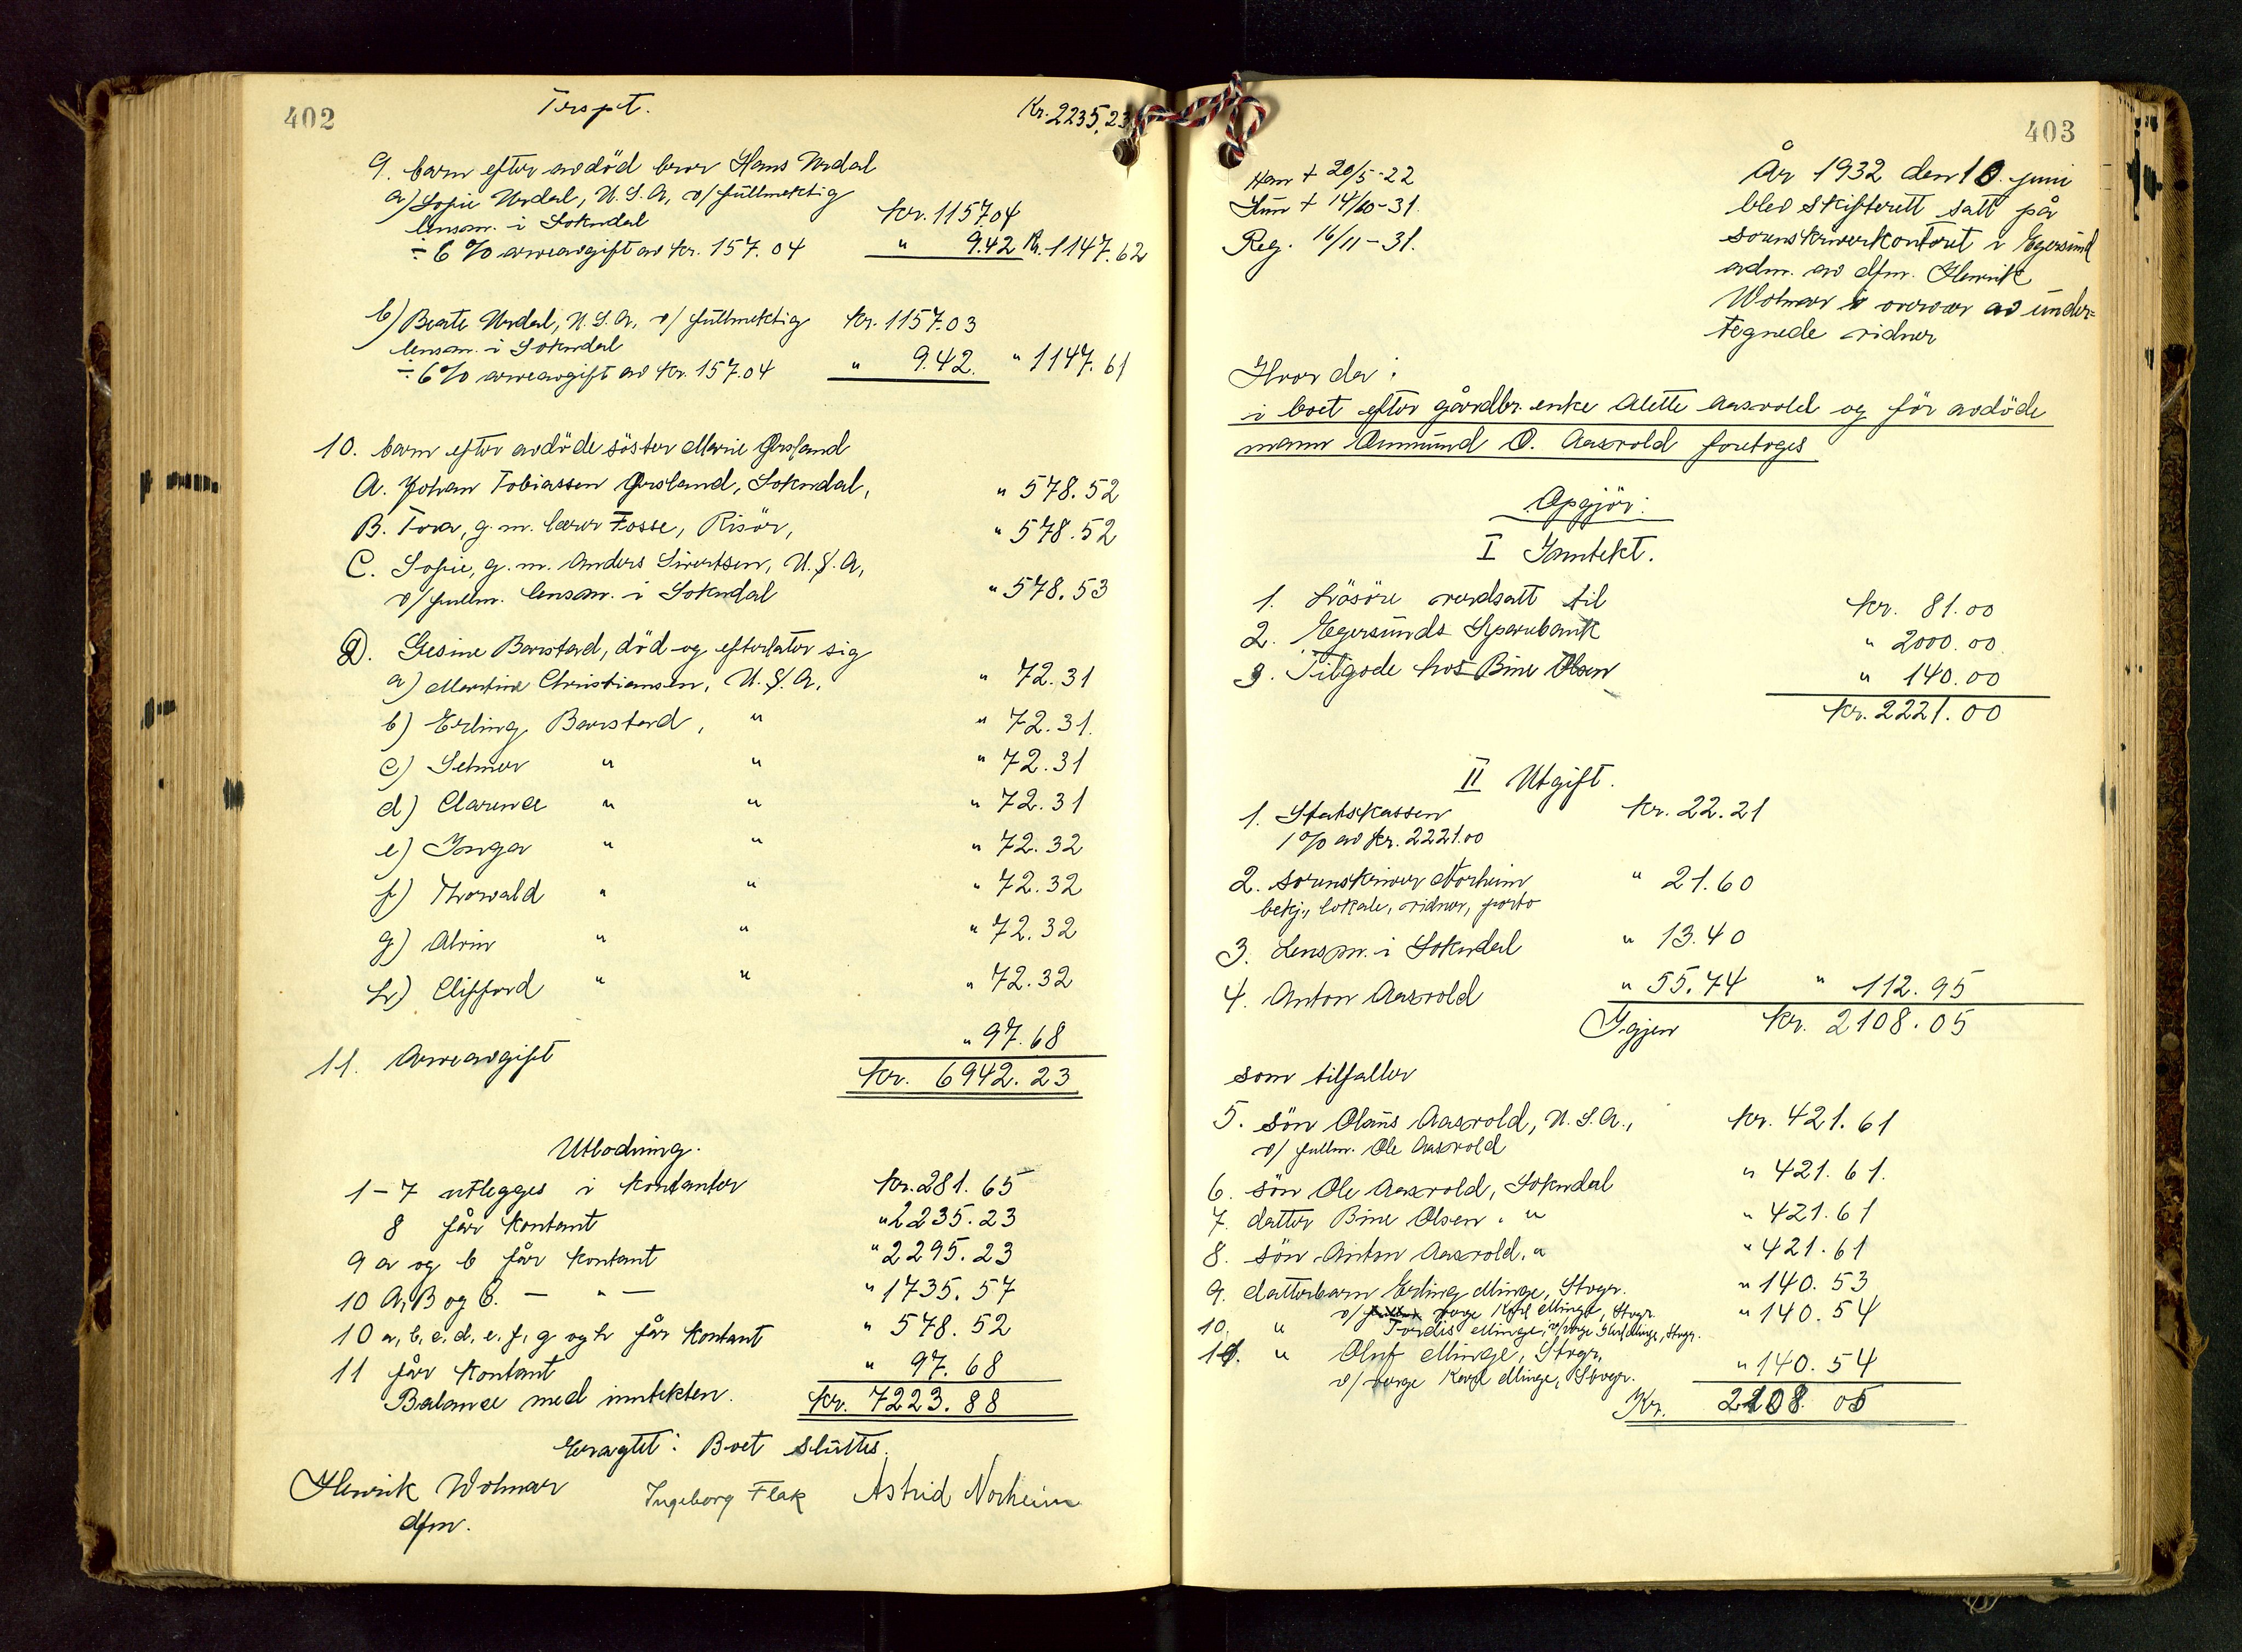 402
Trspt. Kr. 2235.23
9. barn efter avdöd bror Hans Urdal
a) Sofie Urdal, U.S.A, v/ fullmektig
lensm. i Sokndal Kr. 1157.04
÷ 6 % arveavgift av kr. 157.04 " 9.42 Kr. 1147.62
b) Beate Urdal, U.S.A, v/ fullmektig Kr. 1157.03
lensm. i Sokndal
÷ 6 % arveavgift av kr. 157.04 " 9.42. " 1147.61
10. barn efter avdöde söster Marie Örsland
A. Johan Tobiassen Örsland, Sokndal, " 578.52
B. Tora, g.m. lærer Fosse, Risör, " 578.52
C. Sofie, g.m. Anders Sivertsen, U.S.A,
v/ fullm. lensm. i Sokndal " 578.53
D. Gesine Barstad, död og efterlater sig
a) Martine Christiansen, U.S.A, " 72.31
b) Erling Barstad, " " 72.31.
c) Selmer " " " 72.31
d) Clarence " " " 72.31
e) Inga " " " 72.32
f) Thorvald " " " 72.32
g) Alvin " " " 72.32
h) Clifford " " " 72.32
11. Arveavgift " 97.68
Kr. 6942.23
Utlodning.
1-7 utlegges i kontanter Kr. 281.65
8 får kontant " 2235.23
9 a og b får kontant " 2295.23
10 A, B og C. — " — " 1735.57
10 a, b, c, d, e, f, g og h får kontant " 578.52
11 får kontant " 97.68
Balance med inntekten. Kr. 7223.88
Eragtet: Boet sluttes.
Henrik Wolmar Ingeborg Flak Astrid Norheim
dfm.
403
Han + 20/5-22
Hun + 14/10-31.
Reg. 16/11-31.
År 1932 den 10. juni
blev skifterett satt på
sorenskriverkontoret i Egersund
adm. av dfm. Henrik
Wolmar i overvær av under-
tegnede vidner
Hvor da:
i boet efter gårdbr. enke Alette Aasvold og för avdöde
mann Ommund O. Aasvold foretoges
Opgjör:
I Inntekt.
1. Lösöre verdsatt til Kr. 81.00
2. Egersunds Sparebank " 2000.00
3. Tilgode hos Bine Olsen " 140.00
Kr. 2221.00
II Utgift.
1. Statskassen Kr. 22.21
1 % av kr. 2221.00
2. Sorenskriver Norheim " 21.60
bekj., lokale, vidner, porto
3. Lensm. i Sokndal " 13.40
4. Anton Aasvold " 55.74 " 112.95
Igjen Kr. 2108.05
som tilfaller
5. sön Olaus Aasvold, U.S.A., Kr. 421.61
v/ fullm. Ole Aasvold
6. sön Ole Aasvold, Sokndal " 421.61.
7. datter Bine Olsen, " " 421.61
8. sön Anton Aasvold, " " 421.61
9. datterbarn Erling Minge, Stvgr. " 140.53
v/ verge Karl Minge, Stvgr.
10. " Tordis Minge, v/ verge Karl Minge, Stvgr. " 140.54
11. " Oluf Minge, Stvgr. " 140.54
v/ verge Karl Minge, Stvgr.
Kr. 2108.05